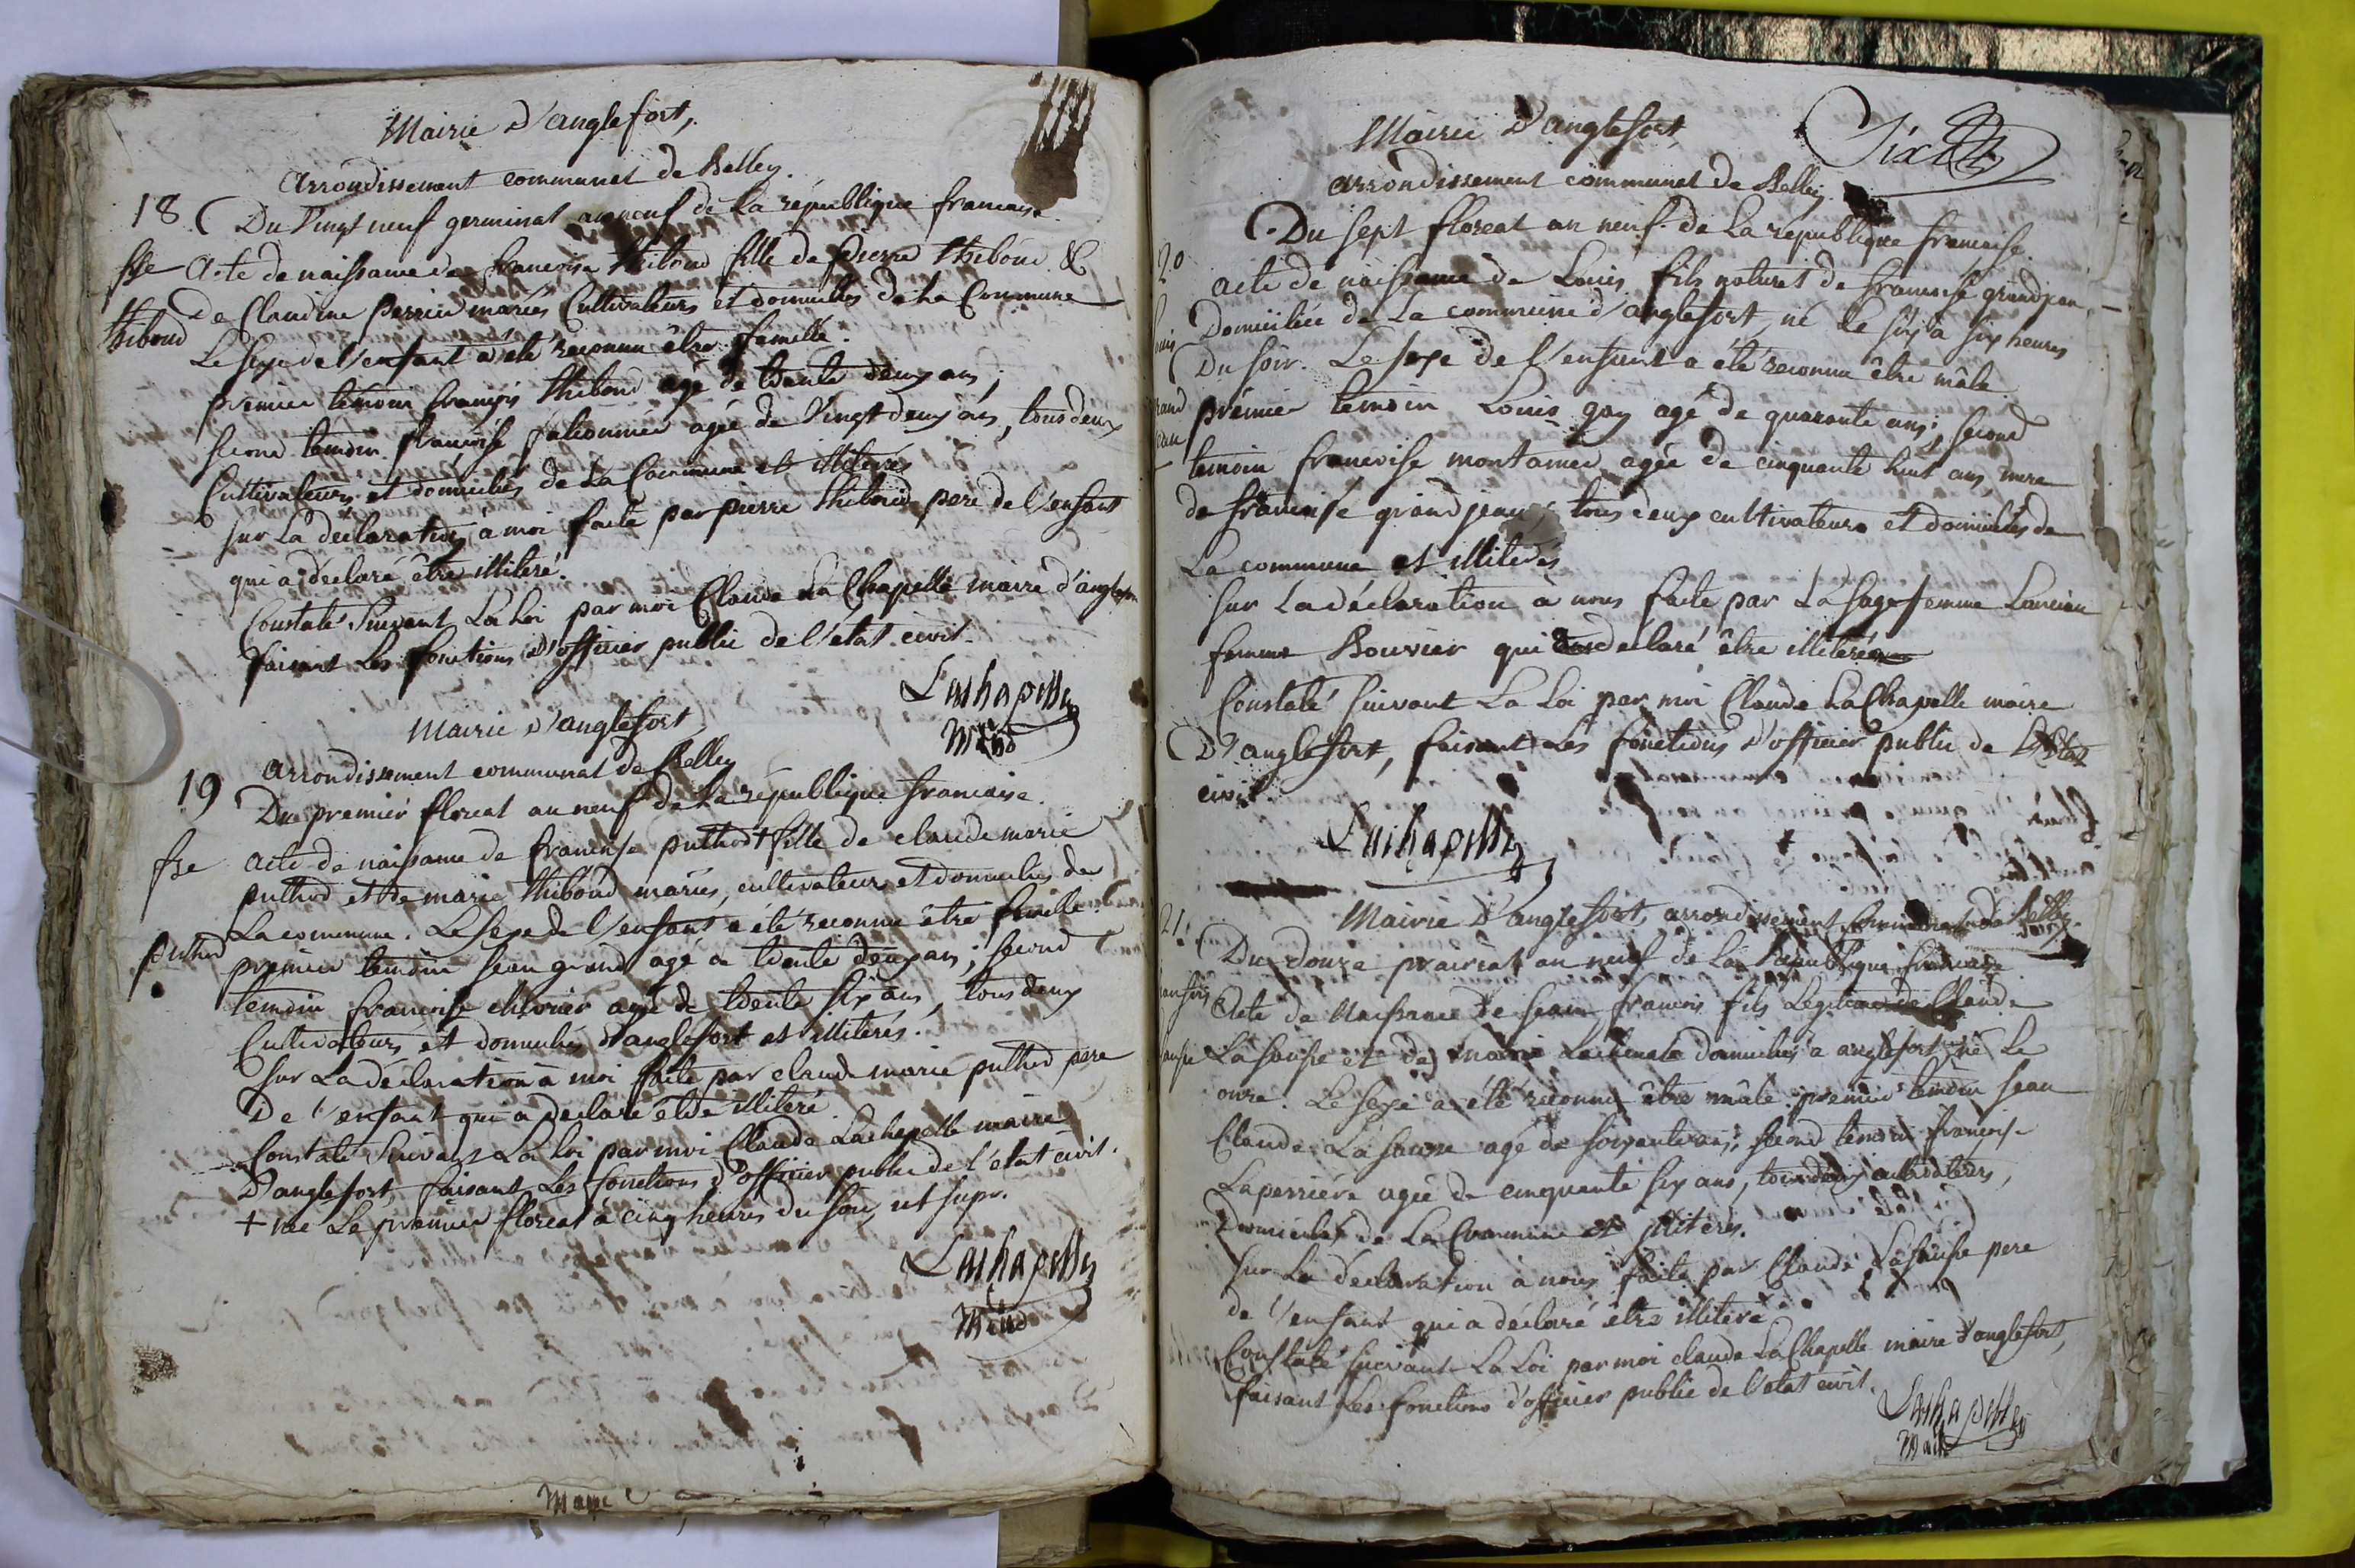 Mairie d'anglefort,
arrondissement communal de Belley.
18 Du Vingt neuf germinal an neuf de la république francaise.
fse Acte de naissance de francoise thiboud fille de pierre thiboud &
thiboud de Claudine perrin mariés Cultivateurs et domiciliés de la Commune
Le sexe de l'enfant a été reconnu être femelle.
premier temoin françois thiboud agé de trente deux ans,
second temoin francoise agée de Vingt deux ans, tous deux
Cultivateurs et domiciliés de la Commune et illiterés
sur la déclaration à moi faite par pierre thiboud pere de l'enfant
qui a déclaré être illiteré.
Constaté Suivant la loi par moi Claude La Chapelle maire d'anglefort
faisant les fonctions d'officier public de l'état civil.
Lachapelle
Maire
Mairie d'anglefort
arrondissement communal de Belley
19 Du premier floreal an neuf de la république francaise.
fse acte de naissance de francoise puthod + fille de claude marie
puthod et de marie thiboud mariés, cultivateurs et domiciliés de
puthod La commune. Le sexe de l'enfant a été reconnu être femelle.
premier temoin jean grand agé de trente deux ans; second
temoin francoise chevrier agée de trente six ans, tous deux
Cultivateurs et domiciliés d'anglefort et illiterés.
sur la déclaration à moi faite par claude marie puthod pere
De l'enfant qui a déclaré être illiteré.
Constaté Suivant la loi par moi Claude Lachapelle maire
D'anglefort, faisant les fonctions d'officier public de l'etat civil.
+ née le premier floreal à cinq heures du soir, ut supr.
Lachapelle
Maire
Maire
Mairie D'anglefort,
Sixte
arrondissement communal de Belley.
20 Du sept floreal an neuf de la republique francaise.
acte de naissance de Louis fils naturel de francoise grandjean,
Domiciliée de la commune d'anglefort, né le six à six heures
Du soir. Le sexe de l'enfant a été reconnu être mâle
premier temoin Louis gay agé de quarante ans; second
temoin francoise montanier agée de cinquante huit ans, mere
de francoise grandjean, tous deux cultivateurs et domiciliés de
La commune et illiterés
sur la déclaration à nous faite par la sage femme
femme Bouvier qui a declaré être illiterée
Constaté suivant la loi par moi Claude La Chapelle maire
D'anglefort, faisant les fonctions d'officier public de l'etat
civil.
Lachapelle
21. Mairie D'anglefort, arrondissement communal de Belley.
Du douze prairial an neuf de la république francaise
Acte de Naissance de jean francois fils Legitime de Claude
La sausse et de marie domiciliés a anglefort, né le
onze. Le sexe a été reconnu être mâle. premier temoin jean
Claude La sausse agé de soixante ans; second temoin francoise
Laperriere agée de cinquante six ans, tous deux cultivateurs,
Domiciliés de la Commune et illiterés.
sur la déclaration à nous faite par Claude La sausse pere
de l'enfant qui a déclaré être illiteré
Constaté suivant la loi par moi claude La Chapelle maire d'anglefort,
faisant les fonctions d'officier public de l'etat civil.
Lachapelle
Maire